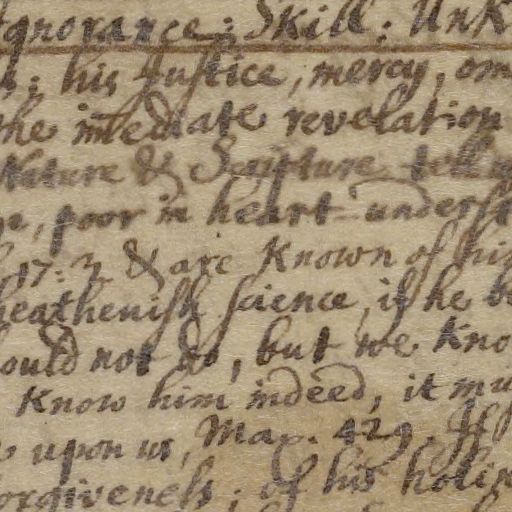 Ignorance; Skill; Unk
; his Justice, mercy, om
the im̅ediate revelation
Nature & Scripture tell
, poor in heart underst
17: 3 & are Known of hi
heathenish science, if he b
ould not do, but we Kno
Know him indeed, it mu
upon us, Map. 429. If
orgiveness; of his holin